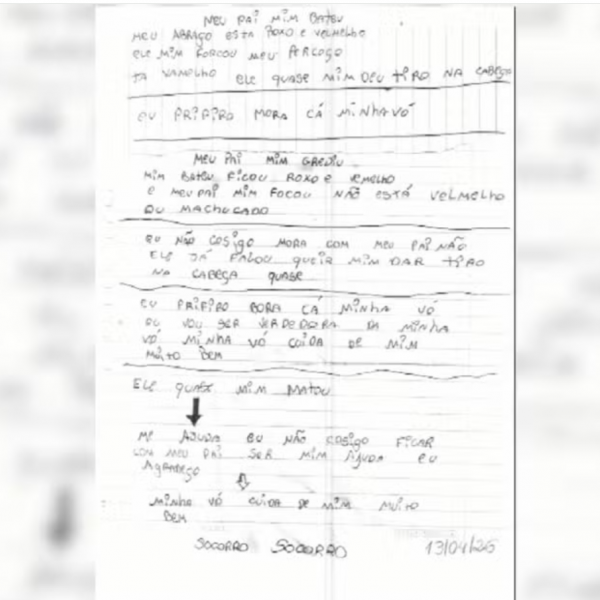 MEU PAI MIM BATEU
MEU ABRAÇO ESTA ROXO E VELMELHO
ELE MIM FORCOU MEU PERCOÇO
TA VAMELHO ELE QUASE MIM DEU TIRO NA CABEÇA
EU PRIFIRO MORA CÁ MINHA VÓ
MEU PAI MIM GREDIU
MIM BATEU FICOU ROXO E VEMELHO
E MEU PAI MIM FOCOU NÃO ESTÁ VELMELHO
OU MACHUCADO
EU NÃO COSIGO MORA COM MEU PAI NÃO
ELE JÁ FALOU QUEIR MIM DAR TIRO
NA CABEÇA QUASE
EU PRIFIRO BORA CÁ MINHA VÓ
EU VOU SER VERDEDEIRA DA MINHA
VÓ MINHA VÓ CUIDA DE MIM
MUITO BEM
ELE QUASE MIM MATOU
ME AJUDA EU NÃO COSIGO FICAR
COM MEU PAI SER MIM AJUDA EU
AGRADEÇO
MINHA VÓ CUIDA DE MIM MUITO
BEM
SOCORRO SOCORRO 13/04/26